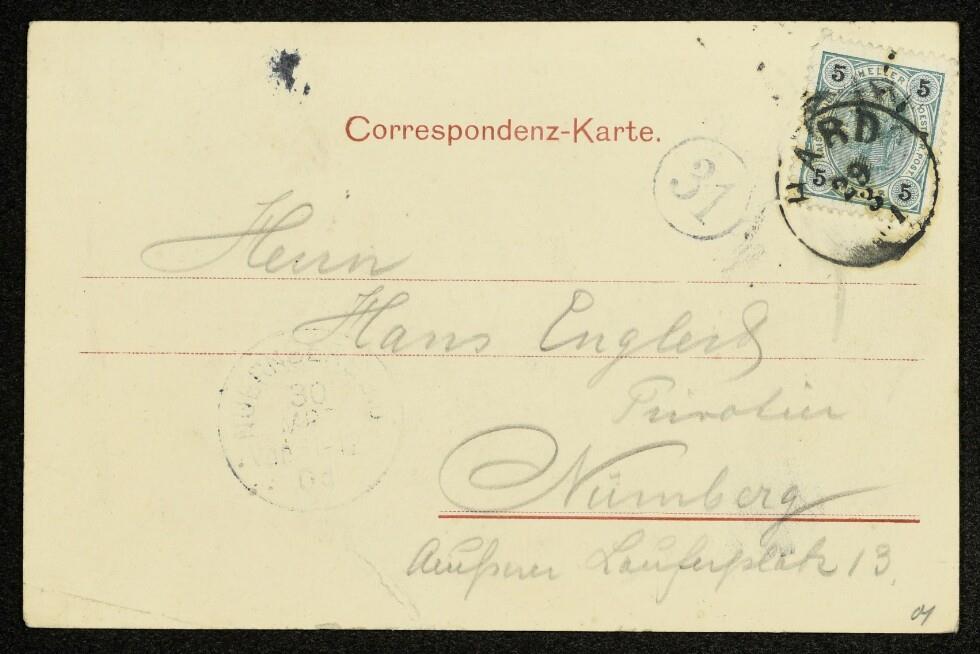 Correspondenz-Karte.
5 HELLER 5
5 5
HARD
31
Herrn
Hans Englert
Privatier
Nürnberg
Äußerer Lauferplatz 13.
30
01